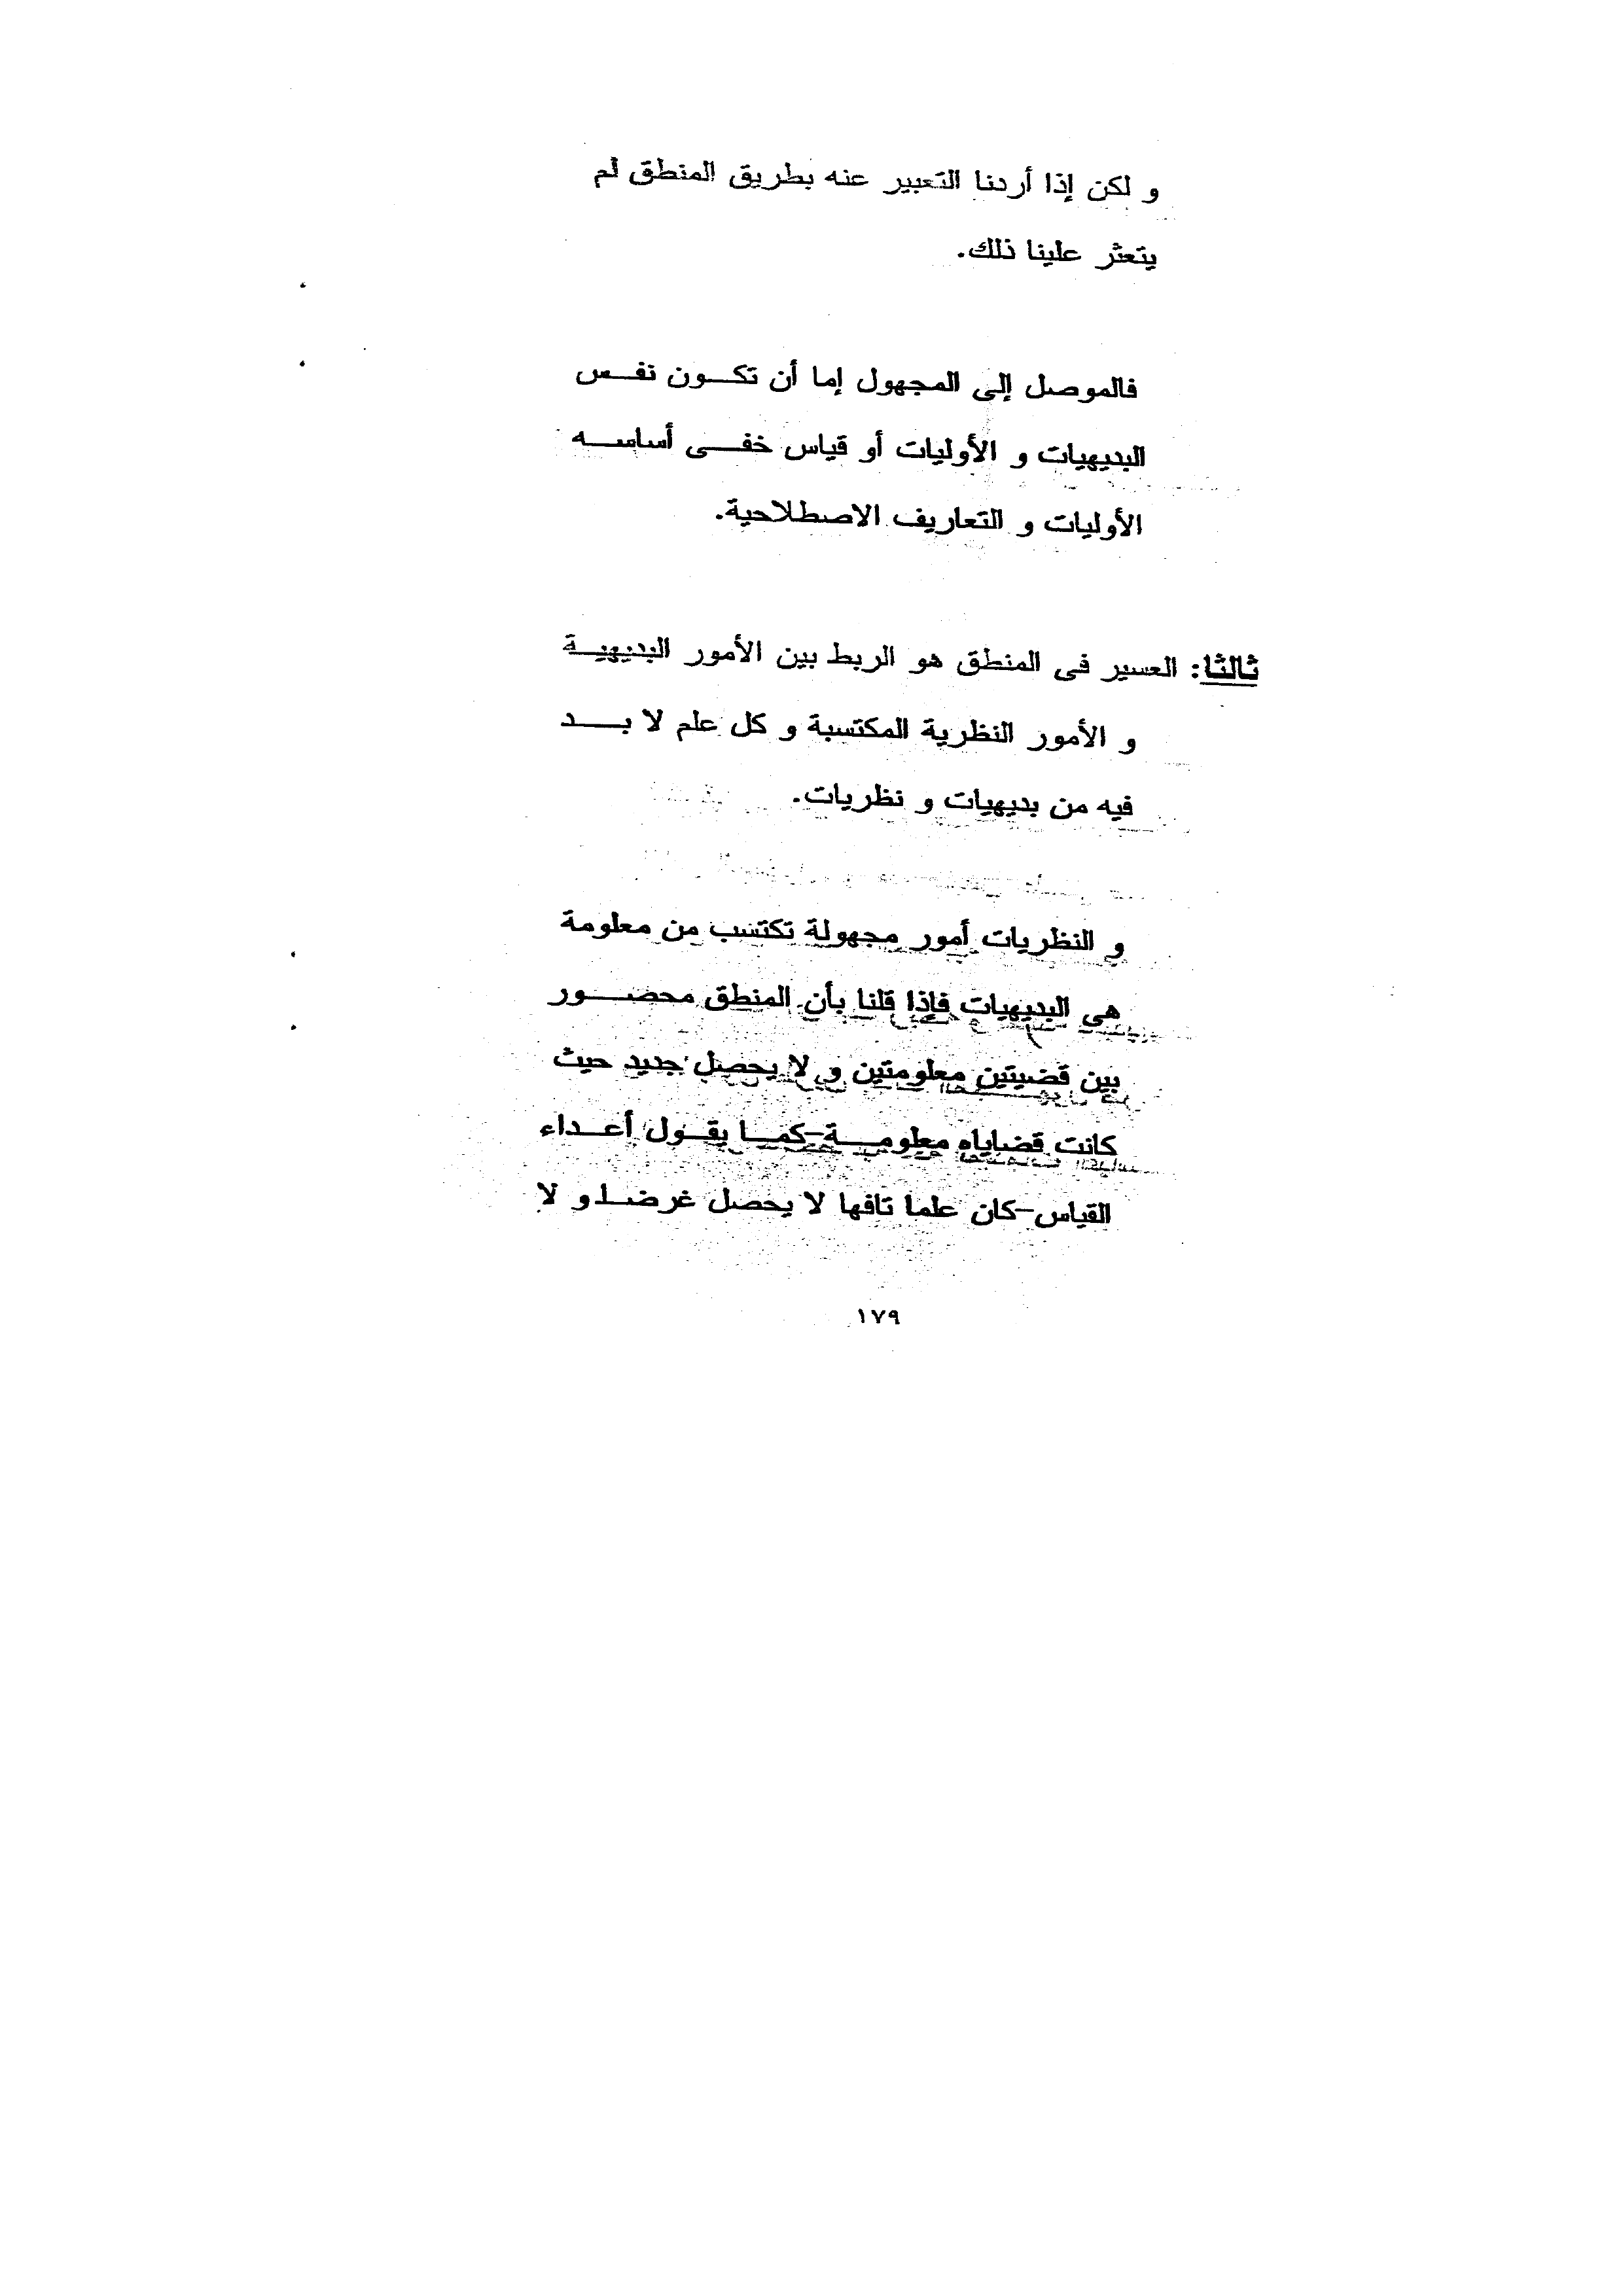 و لكن إذا أردنا التعبير عنه بطريق المنطق لم
يتعثر علينا ذلك.
فالموصل إلى المجهول إما أن تكون نفس
البديهيات و الأوليات أو قياس خفى أساسه
الأوليات و التعاريف الاصطلاحية.
ثالثا: العسير فى المنطق هو الربط بين الأمور البديهية
و الأمور النظرية المكتسبة و كل علم لا بد
فيه من بديهيات و نظريات.
و النظريات أمور مجهولة تكتسب من معلومة
هى البديهيات فإذا قلنا بأن المنطق محصور
بين قضيتين معلومتين و لا يحصل جديد حيث
كانت قضاياه معلومة-كما يقول أعداء
القياس-كان علما تافها لا يحصل غرضا و لا
١٧٩